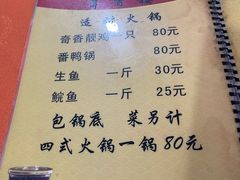 火锅
奇香靓鸡一只 80元
番鸭锅 80元
生鱼 一斤 30元
鲩鱼 一斤 25元
包锅底 菜另计
四式火锅一锅80元